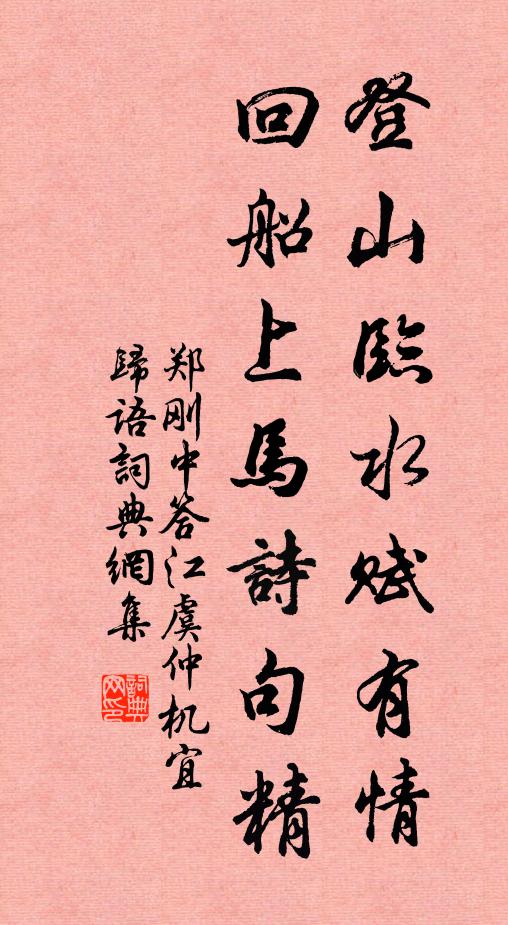 登山臨水賦有情
回船上馬詩句精
郑刚中答江虞仲机宜
歸语詞典網集
詞典网印